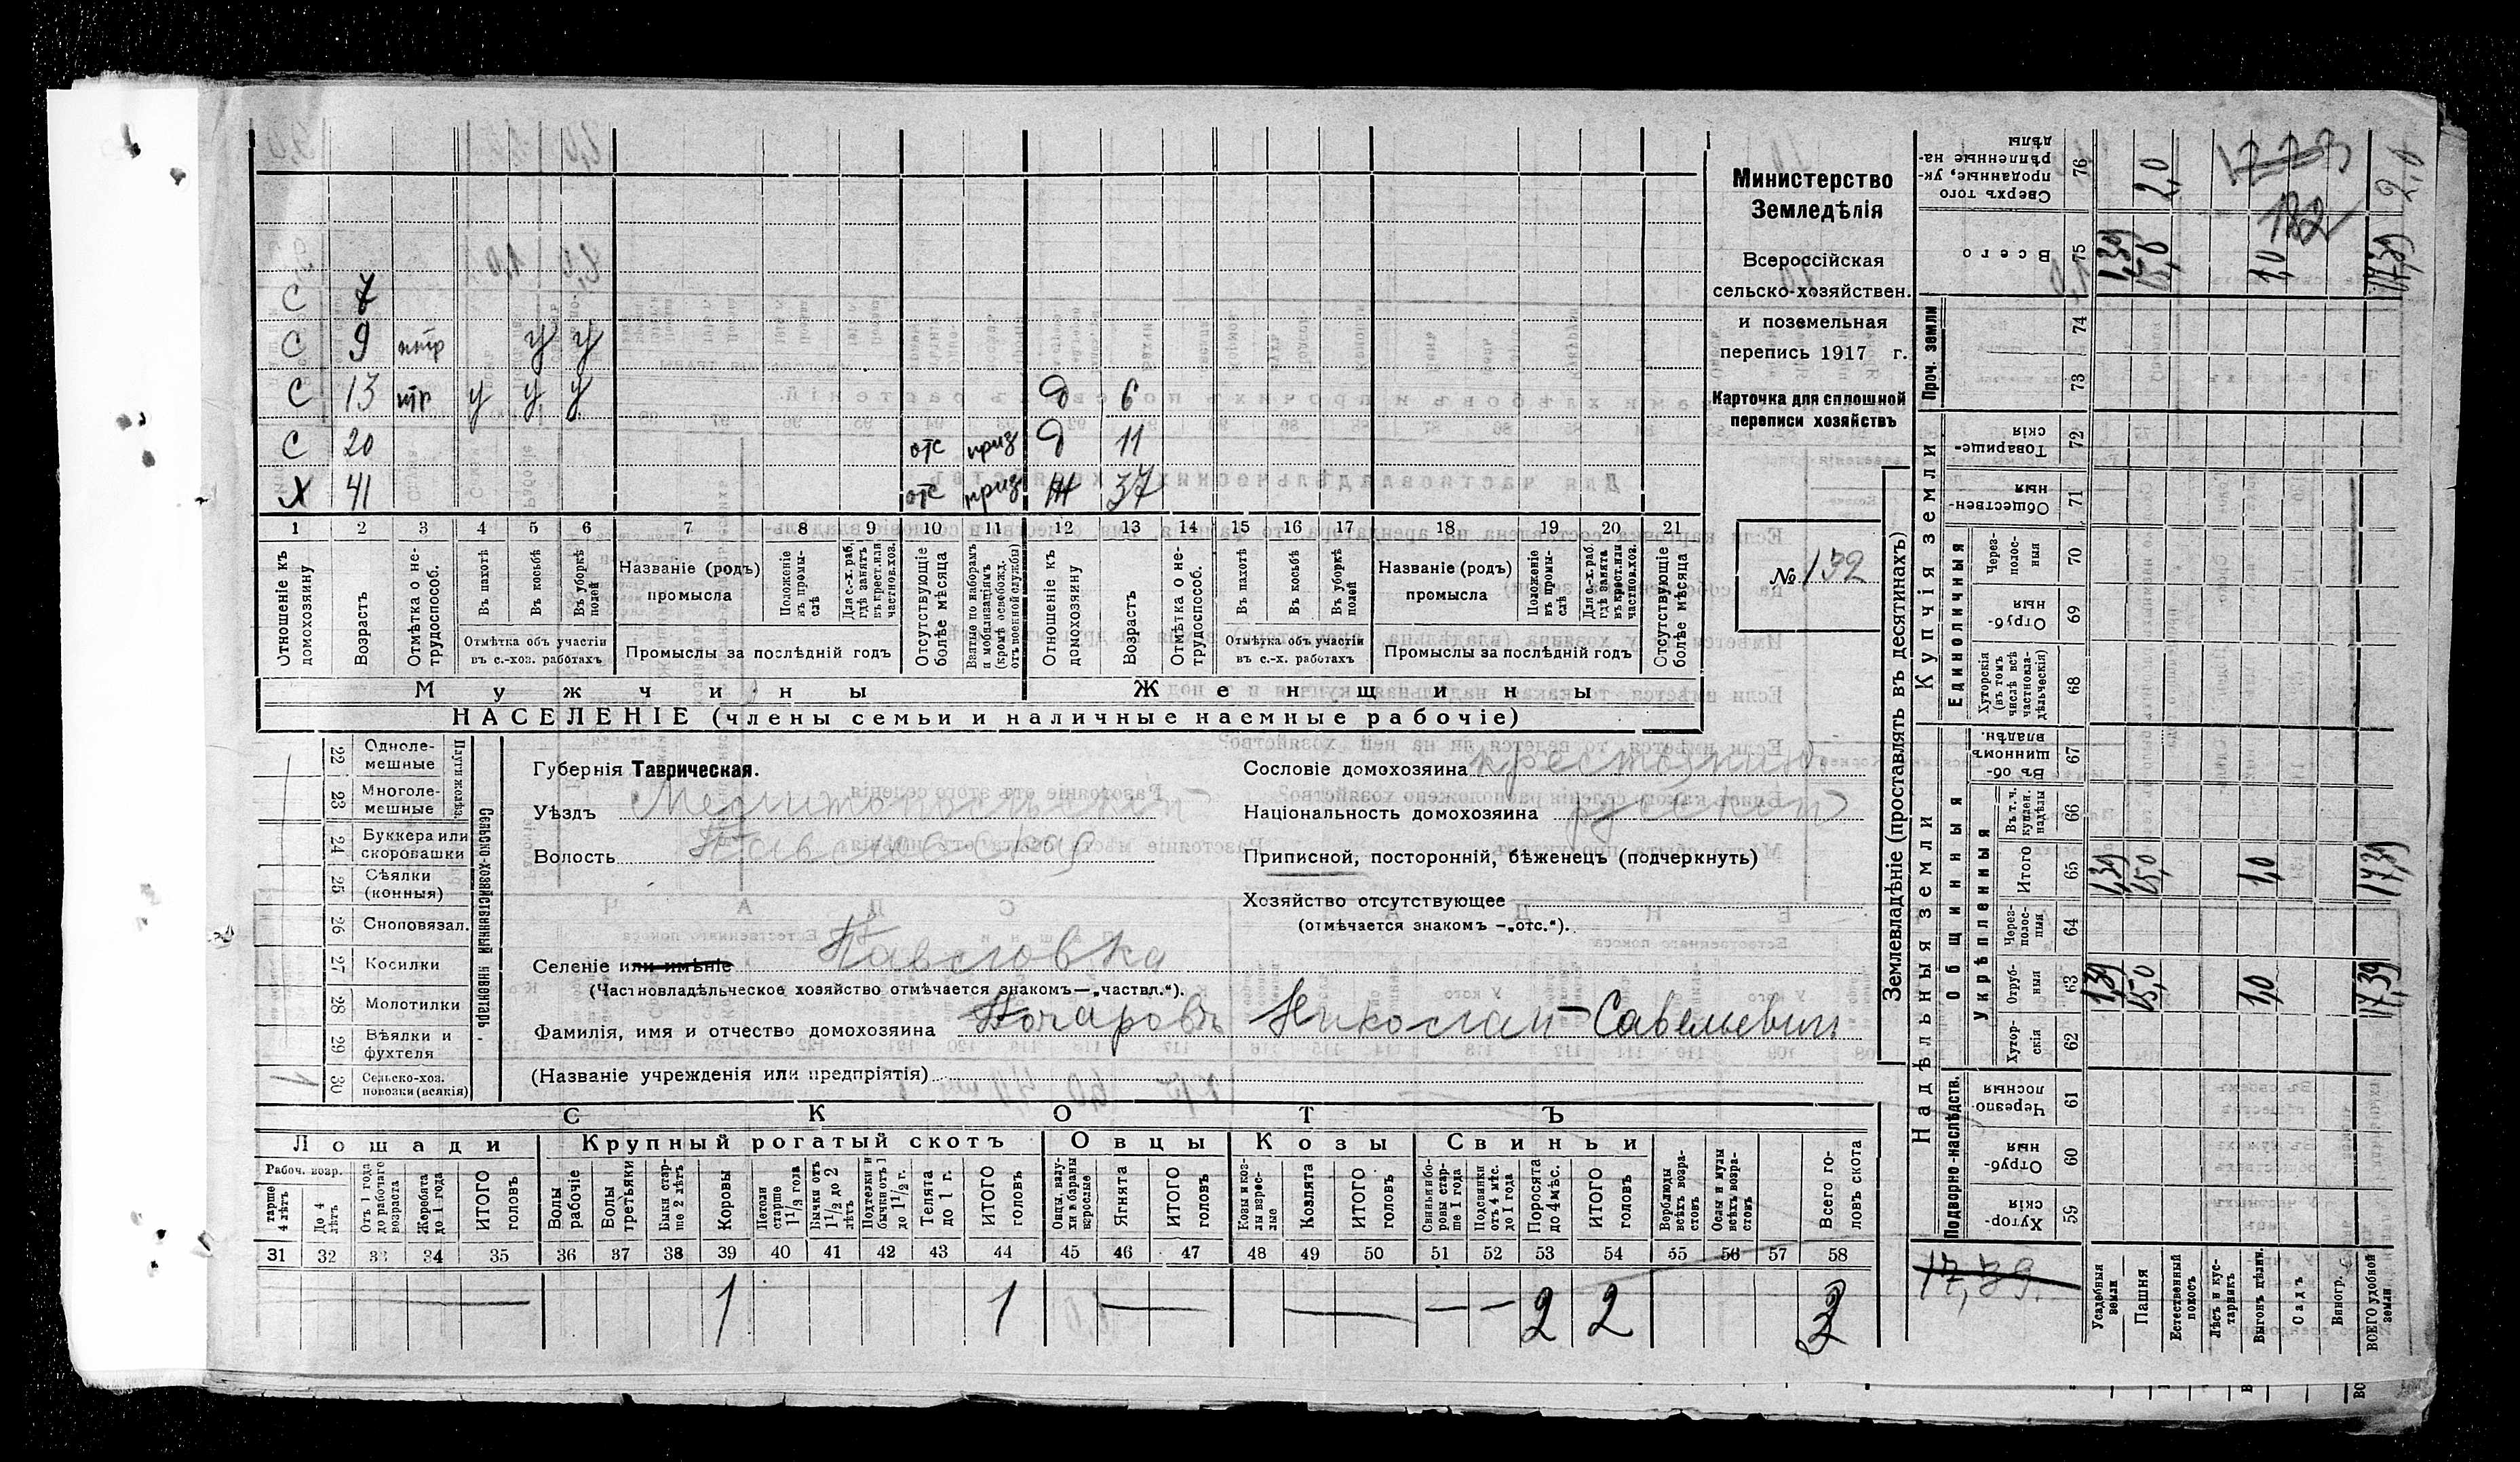 С 7
С 9 ппр у у
С 13 пр у у у д 6
С 20 отс приз д 11
Х 41 отс приз Ж 37
1 2 3 4 5 6 7 8 9 10 11 12 13 14 15 16 17 18 19 20 21
Отношеніе къ домохозяину.
Возрастъ
Отмѣтка о не-трудоспособ.
Въ пахотѣ
Въ косьбѣ
Въ уборкѣ полей
Отмѣтка объ участіи
въ с.-хоз. работахъ
Названіе (родъ)
промысла
Положеніе въ промы-слѣ
Для с.-х. раб. гдѣ занятъ въ крест. или частнов. хоз.
Промыслы за послѣдній годъ
Отсутствующіе болѣе мѣсяца
Взятые по наборамъ и мобилизаціямъ (кромѣ освобожд. отъ военной службы)
Отношеніе къ домохозяину
Возрастъ
Отмѣтка о не-трудоспособ.
Въ пахотѣ
Въ косьбѣ
Въ уборкѣ полей
Отмѣтка объ участіи
въ с.-х. работахъ
Названіе (родъ)
промысла
Положеніе въ промы-слѣ
Для с.-х. раб. гдѣ занята въ крест. или частнов. хоз.
Промыслы за послѣдній годъ
Отсутствующіе болѣе мѣсяца
Мужчины Женщины
НАСЕЛЕНІЕ (члены семьи и наличные наемные рабочіе)
Министерство
Земледѣлія
Всероссійская
сельско-хозяйствен.
и поземельная
перепись 1917 г.
Карточка для сплошной
переписи хозяйствъ
№ 132
22 Одноле-мешные
23 Многоле-мешные
Плуги желѣз.
24 Буккера или скоропашки
25 Сѣялки (конныя)
26 Сноповязал.
27 Косилки
28 Молотилки
29 Вѣялки и фухтеля
30 Сельско-хоз. повозки (всякія) 1
Сельско-хозяйственный инвентарь.
Губернія Таврическая.
Уѣздъ Мелитопольскій
Волость Павловская
Селеніе или имѣніе Павловка
(Частновладѣльческое хозяйство отмѣчается знакомъ—„частвл.“).
Фамилія, имя и отчество домохозяина Почаровъ Николай Савельевич
(Названіе учрежденія или предпріятія)
Сословіе домохозяина крестьянин
Національность домохозяина русскій
Приписной, посторонній, бѣженецъ (подчеркнуть)
Хозяйство отсутствующее
(отмѣчается знакомъ —„отс.“).
СКОТЪ
Лошади Крупный рогатый скотъ Овцы Козы Свиньи
Рабоч. возр.
тарше 4 лѣтъ
До 4 лѣтъ
Отъ 1 года до рабочаго возраста
Жеребята до 1 года
ИТОГО головъ
Волы рабочіе
Волы третьяки
Быки стар-ше 2 лѣтъ
Коровы
Нетели старше 1½ года
Бычки отъ 1½ до 2 лѣтъ
Подтелки и бычки отъ 1 до 1½ г.
Телята до 1 г.
ИТОГО головъ
Овцы, валу-хи и бараны взрослые
Ягнята
ИТОГО головъ
Козы и коз-лы взрос-лые
Козлята
ИТОГО головъ
Свиньи и бо-ровы стар-ше 1 года
Подсвинки отъ 4 мѣс. до 1 года
Поросята до 4 мѣс.
ИТОГО головъ
Верблюды всѣхъ возра-стовъ
Ослы и мулы всѣхъ возра-стовъ
Всего го-ловъ скота
31 32 33 34 35 36 37 38 39 40 41 42 43 44 45 46 47 48 49 50 51 52 53 54 55 56 57 58
1 1 — — — — 2 2 3
Землевладѣніе (проставлять въ десятинахъ)
Купчія земли
Надѣльныя земли
Проч. земли
Единоличныя
Общинныя
Укрѣпленныя
Подворно-наслѣдств.
Сверхъ того проданные, ук-рѣпленные на-дѣлы 76 2,0 2,0
Всего 75 1,39 15,0 1,0 17,39
1773
182
74
73
Товарище-скія 72
Обществен-ныя 71
Через-полос-ныя 70
Отруб-ныя 69
Хуторскія (въ томъ числѣ всѣ частновла-дѣльческія) 68
Въ об-щинномъ владѣн. 67
Въ т. ч. куплен. надѣлы 66
Итого 65 1,39 15,0 1,0 17,39
Через-полос-ныя 64
Отруб-ныя 63 1,39 15,0 1,0 17,39
Хутор-скія 62
Черезпо-лосныя 61
Отруб-ныя 60
Хутор-скія 59
17,39.
Усадебныя земли
Пашня
Естественный покосъ
Лѣсъ и кус-тарникъ
Выгонъ цѣлин.
Садъ
Виногр.
ВСЕГО удобной земли